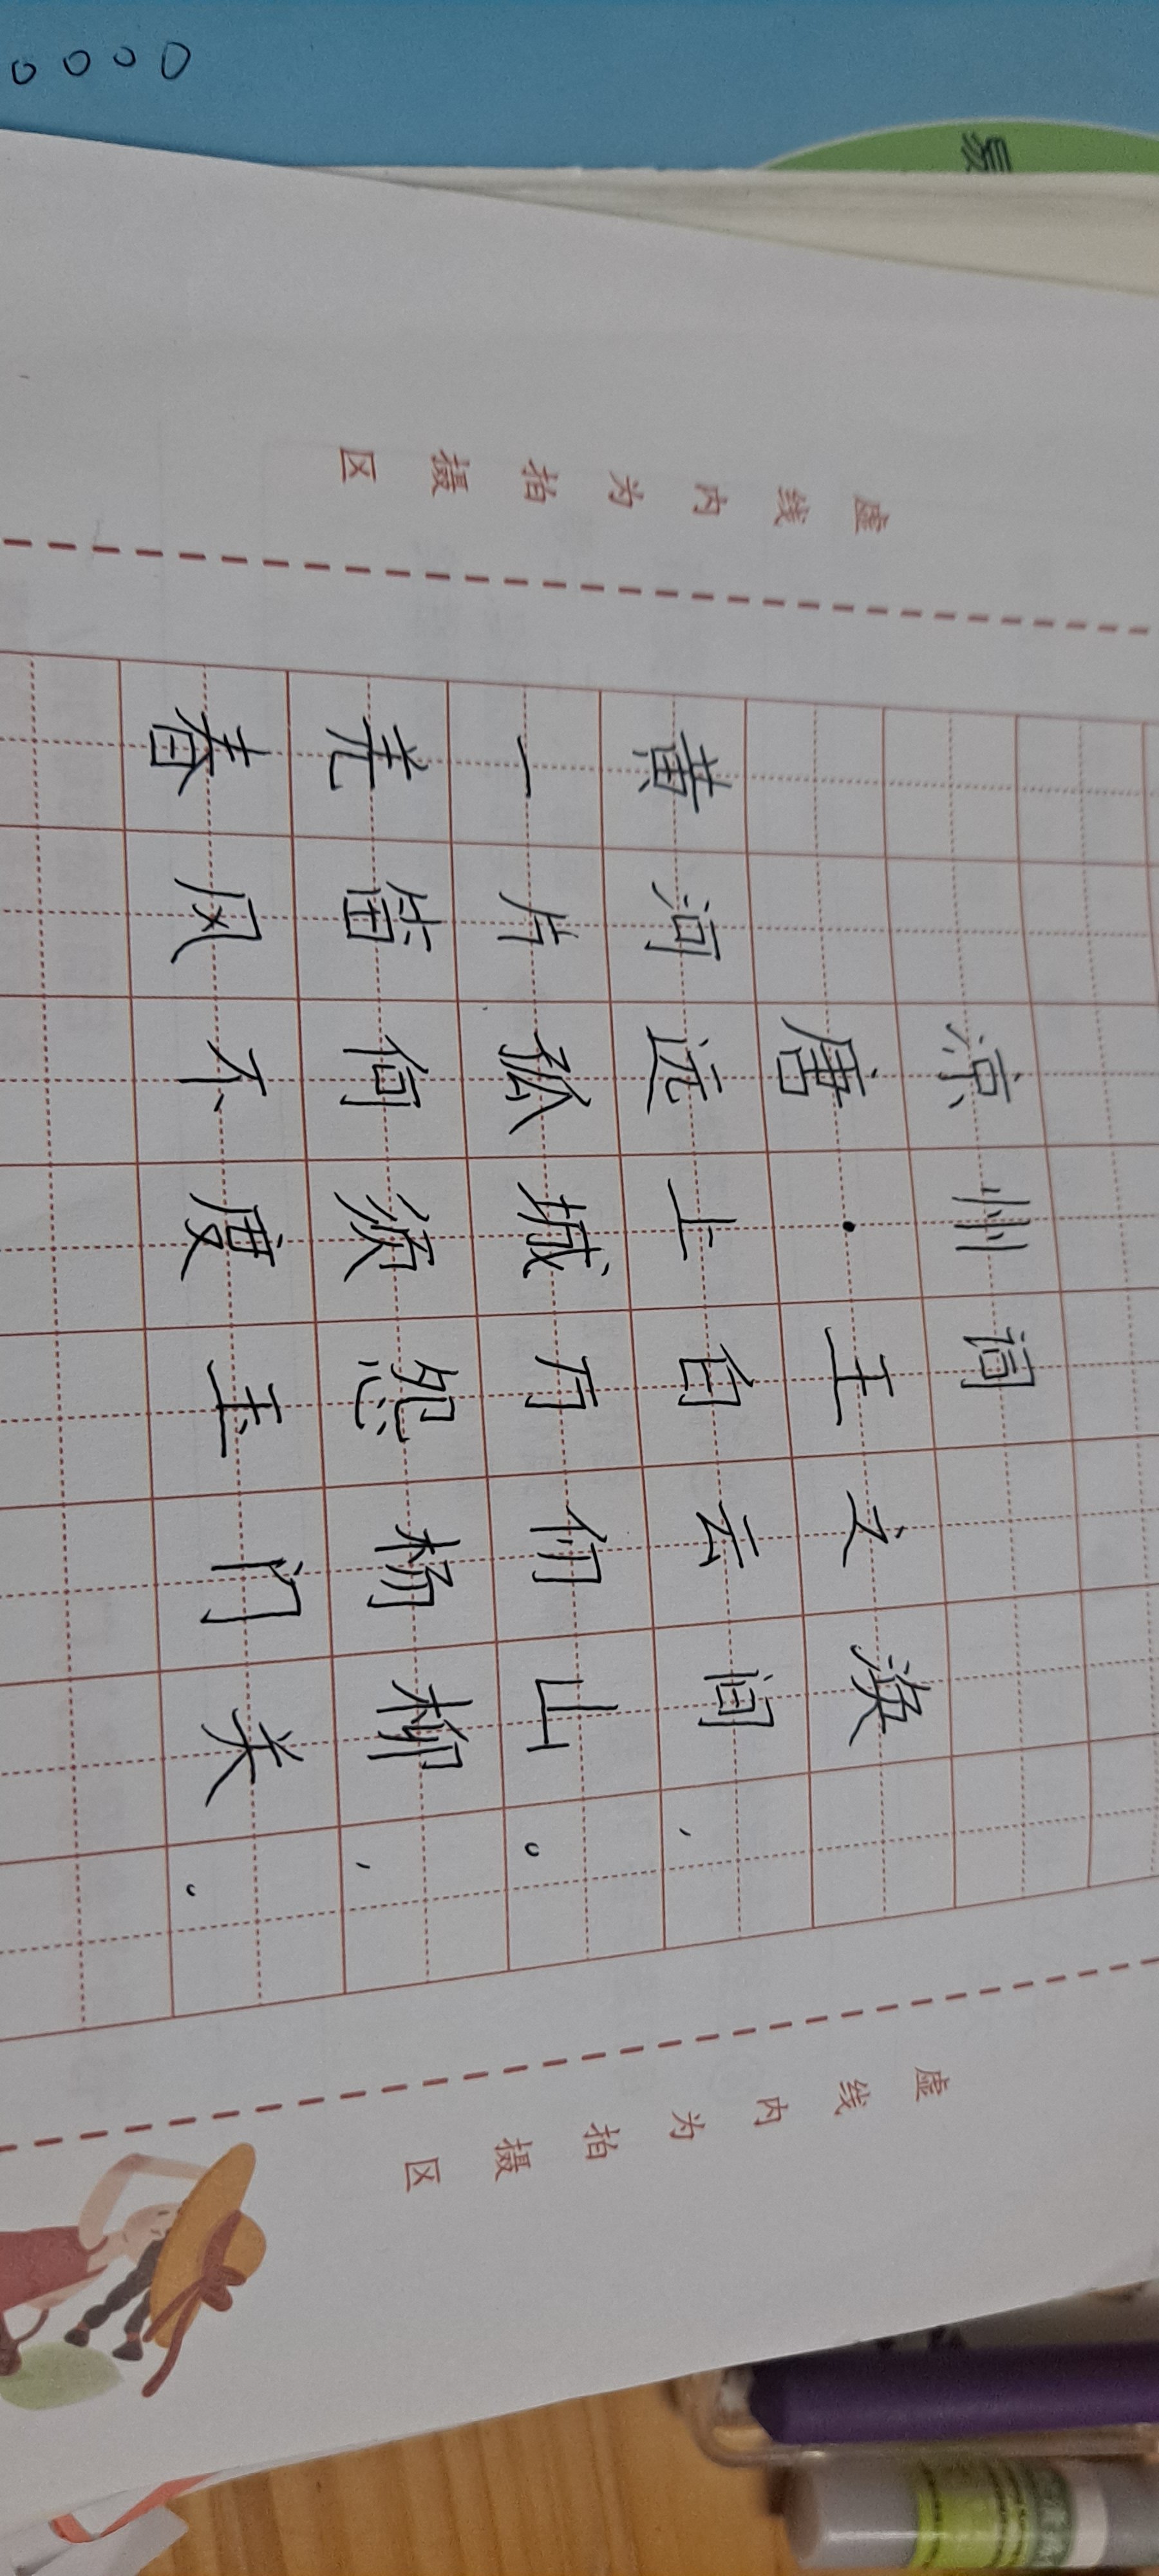 虚线内为拍摄区
凉州词
唐·王之涣
黄河远上白云间，
一片孤城万仞山。
羌笛何须怨杨柳，
春风不度玉门关。
虚线内为拍摄区